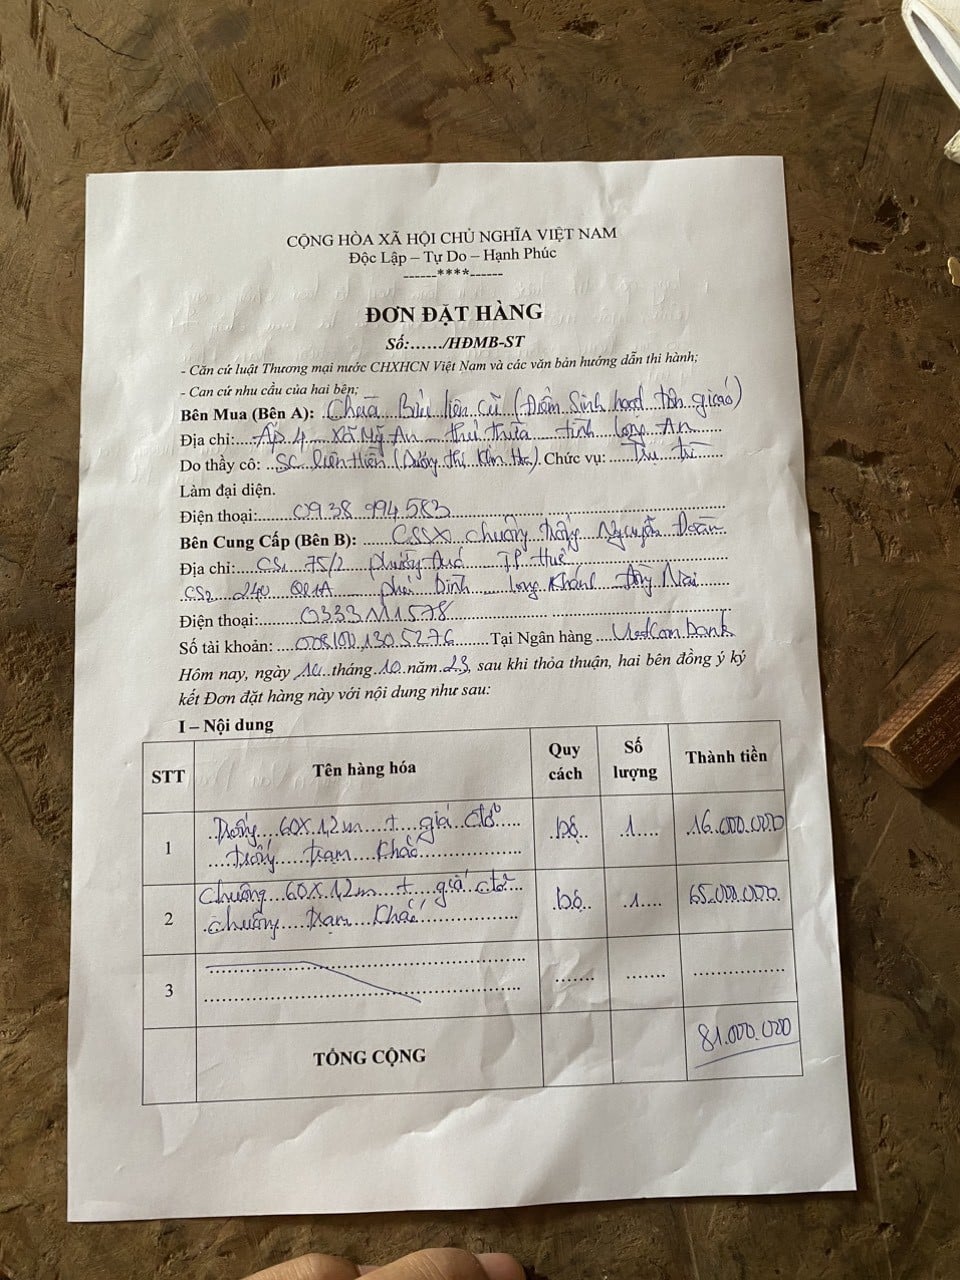 CỘNG HÒA XÃ HỘI CHỦ NGHĨA VIỆT NAM
Độc Lập – Tự Do – Hạnh Phúc
------****------
ĐƠN ĐẶT HÀNG
Số:....../HĐMB-ST
- Căn cứ luật Thương mại nước CHXHCN Việt Nam và các văn bản hướng dẫn thi hành;
- Can cứ nhu cầu của hai bên;
Bên Mua (Bên A): Chùa Bửu liên cừ (Điểm Sinh hoạt tôn giáo)
Địa chỉ: Ấp 4 Xã Mỹ An thủ thừa tỉnh Long An
Do thầy cô: SC Liên Hiền (Dương thị Kim). Chức vụ: Trụ trì
Làm đại diện.
Điện thoại: 0938 994583
Bên Cung Cấp (Bên B): CSSX chuông trống Nguyễn Đoàn
Địa chỉ: CS1 75/2 phường Đúc TP Huế
CS2 240 QL1A phú Bình Long Khánh Đồng Nai
Điện thoại: 0333111578
Số tài khoản: 0081001305276 Tại Ngân hàng Vietcombank
Hôm nay, ngày 14 tháng 10 năm 23, sau khi thỏa thuận, hai bên đồng ý ký
kết Đơn đặt hàng này với nội dung như sau:
I – Nội dung
STT Tên hàng hóa Quy cách Số lượng Thành tiền
1 Trống 60X1,2m + giá đỡ bộ 1 16.000.000
trống trạm khắc
2 Chuông 60X1,2m + giá đỡ bộ 1 65.000.000
chuông trạm khắc
3
TỔNG CỘNG 81.000.000